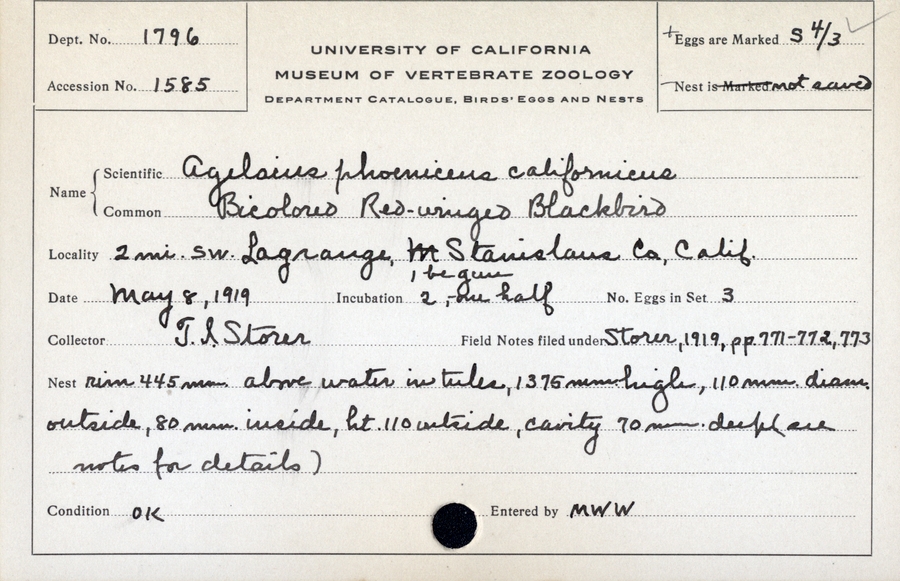 Dept. No. 1796
Accession No. 1585
UNIVERSITY OF CALIFORNIA
MUSEUM OF VERTEBRATE ZOOLOGY
DEPARTMENT CATALOGUE, BIRDS' EGGS AND NESTS
+Eggs are Marked S 4/3
Nest is Marked not saved
Name
Scientific Agelaius phoeniceus californicus
Common Bicolored Red-winged Blackbird
Locality 2 mi. SW. Lagrange, M Stanislaus Co, Calif.
1, begun
Date May 8, 1919 Incubation 2, one half No. Eggs in Set 3
Collector T. I. Storer Field Notes filed under Storer, 1919, pp. 771-772, 773
Nest rim 445 mm. above water in tules, 1375 mm high, 110 mm. diam.
outside, 80 mm. inside, ht. 110 outside, cavity 70 mm. deep (see
notes for details)
Condition OK Entered by MWW